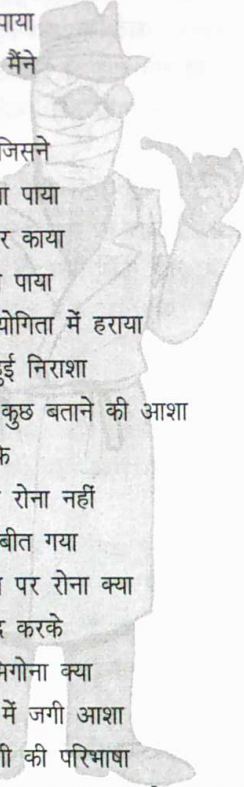 पाया
मैंने
जिसने
पाया
काया
पाया
योगिता में हराया
निराशा
कुछ बताने की आशा
के
रोना नहीं
बीत गया
पर रोना क्या
करके
भिगोना क्या
में जगी आशा
की परिभाषा